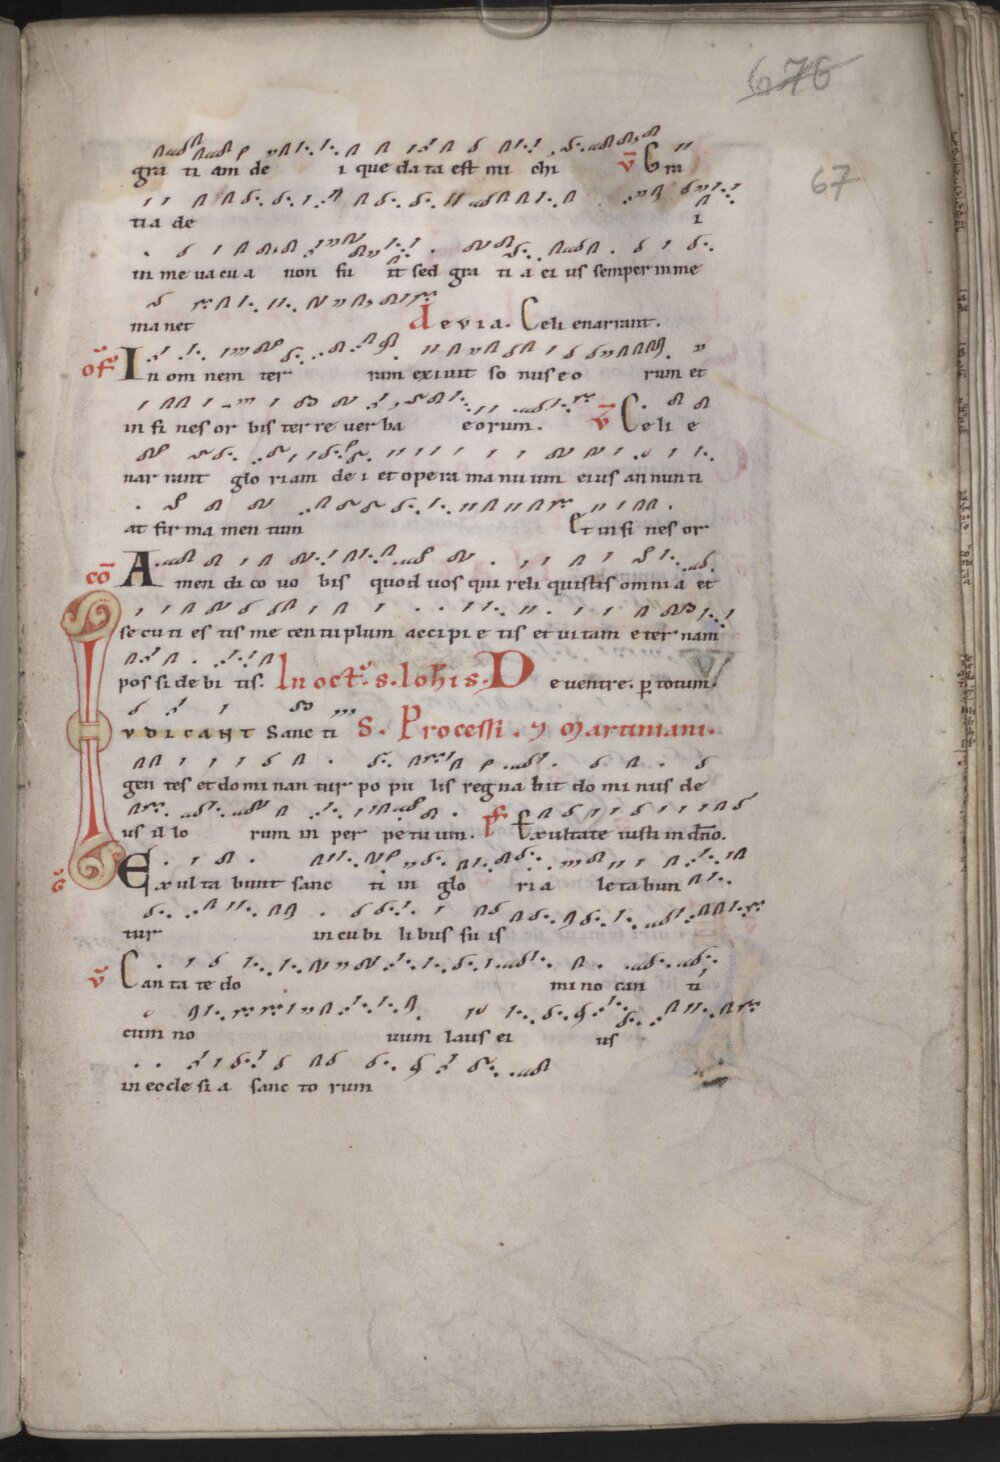 676
67
gra ti am de i que data est mi chi v Gra
tia de i
in me vacu a non fu it sed gra ti a ei us semper in me
ma net de via. Celi enarrant.
of In om nem ter ram exivit so nus eo rum et
in fi nes or bis ter re ver ba eorum. v Celi e
nar rant glo riam de i et opera ma nu um eius an nun ti
at fir ma men tum Et in fi nes or
co Amen di co vo bis quod vos qui reli quistis omnia et
se cu ti es tis me cen tu plum accipi e tis et vitam eter nam
pos si de bi tis. In oct. s. Iohis. De ventre. p totum.
IVDICANT Sanc ti S. Processi. 7 Martiniani.
gen tes et do mi nan tur po pu lis regna bit do mi nus de
us il lo rum in per pe tu um. ps Exultate iusti in dno.
G Exul ta bunt sanc ti in glo ri a letabun
tur in cu bi li bus su is
v Can ta te do mi no can ti
cum no vum laus ei us
in eccle si a sanc to rum